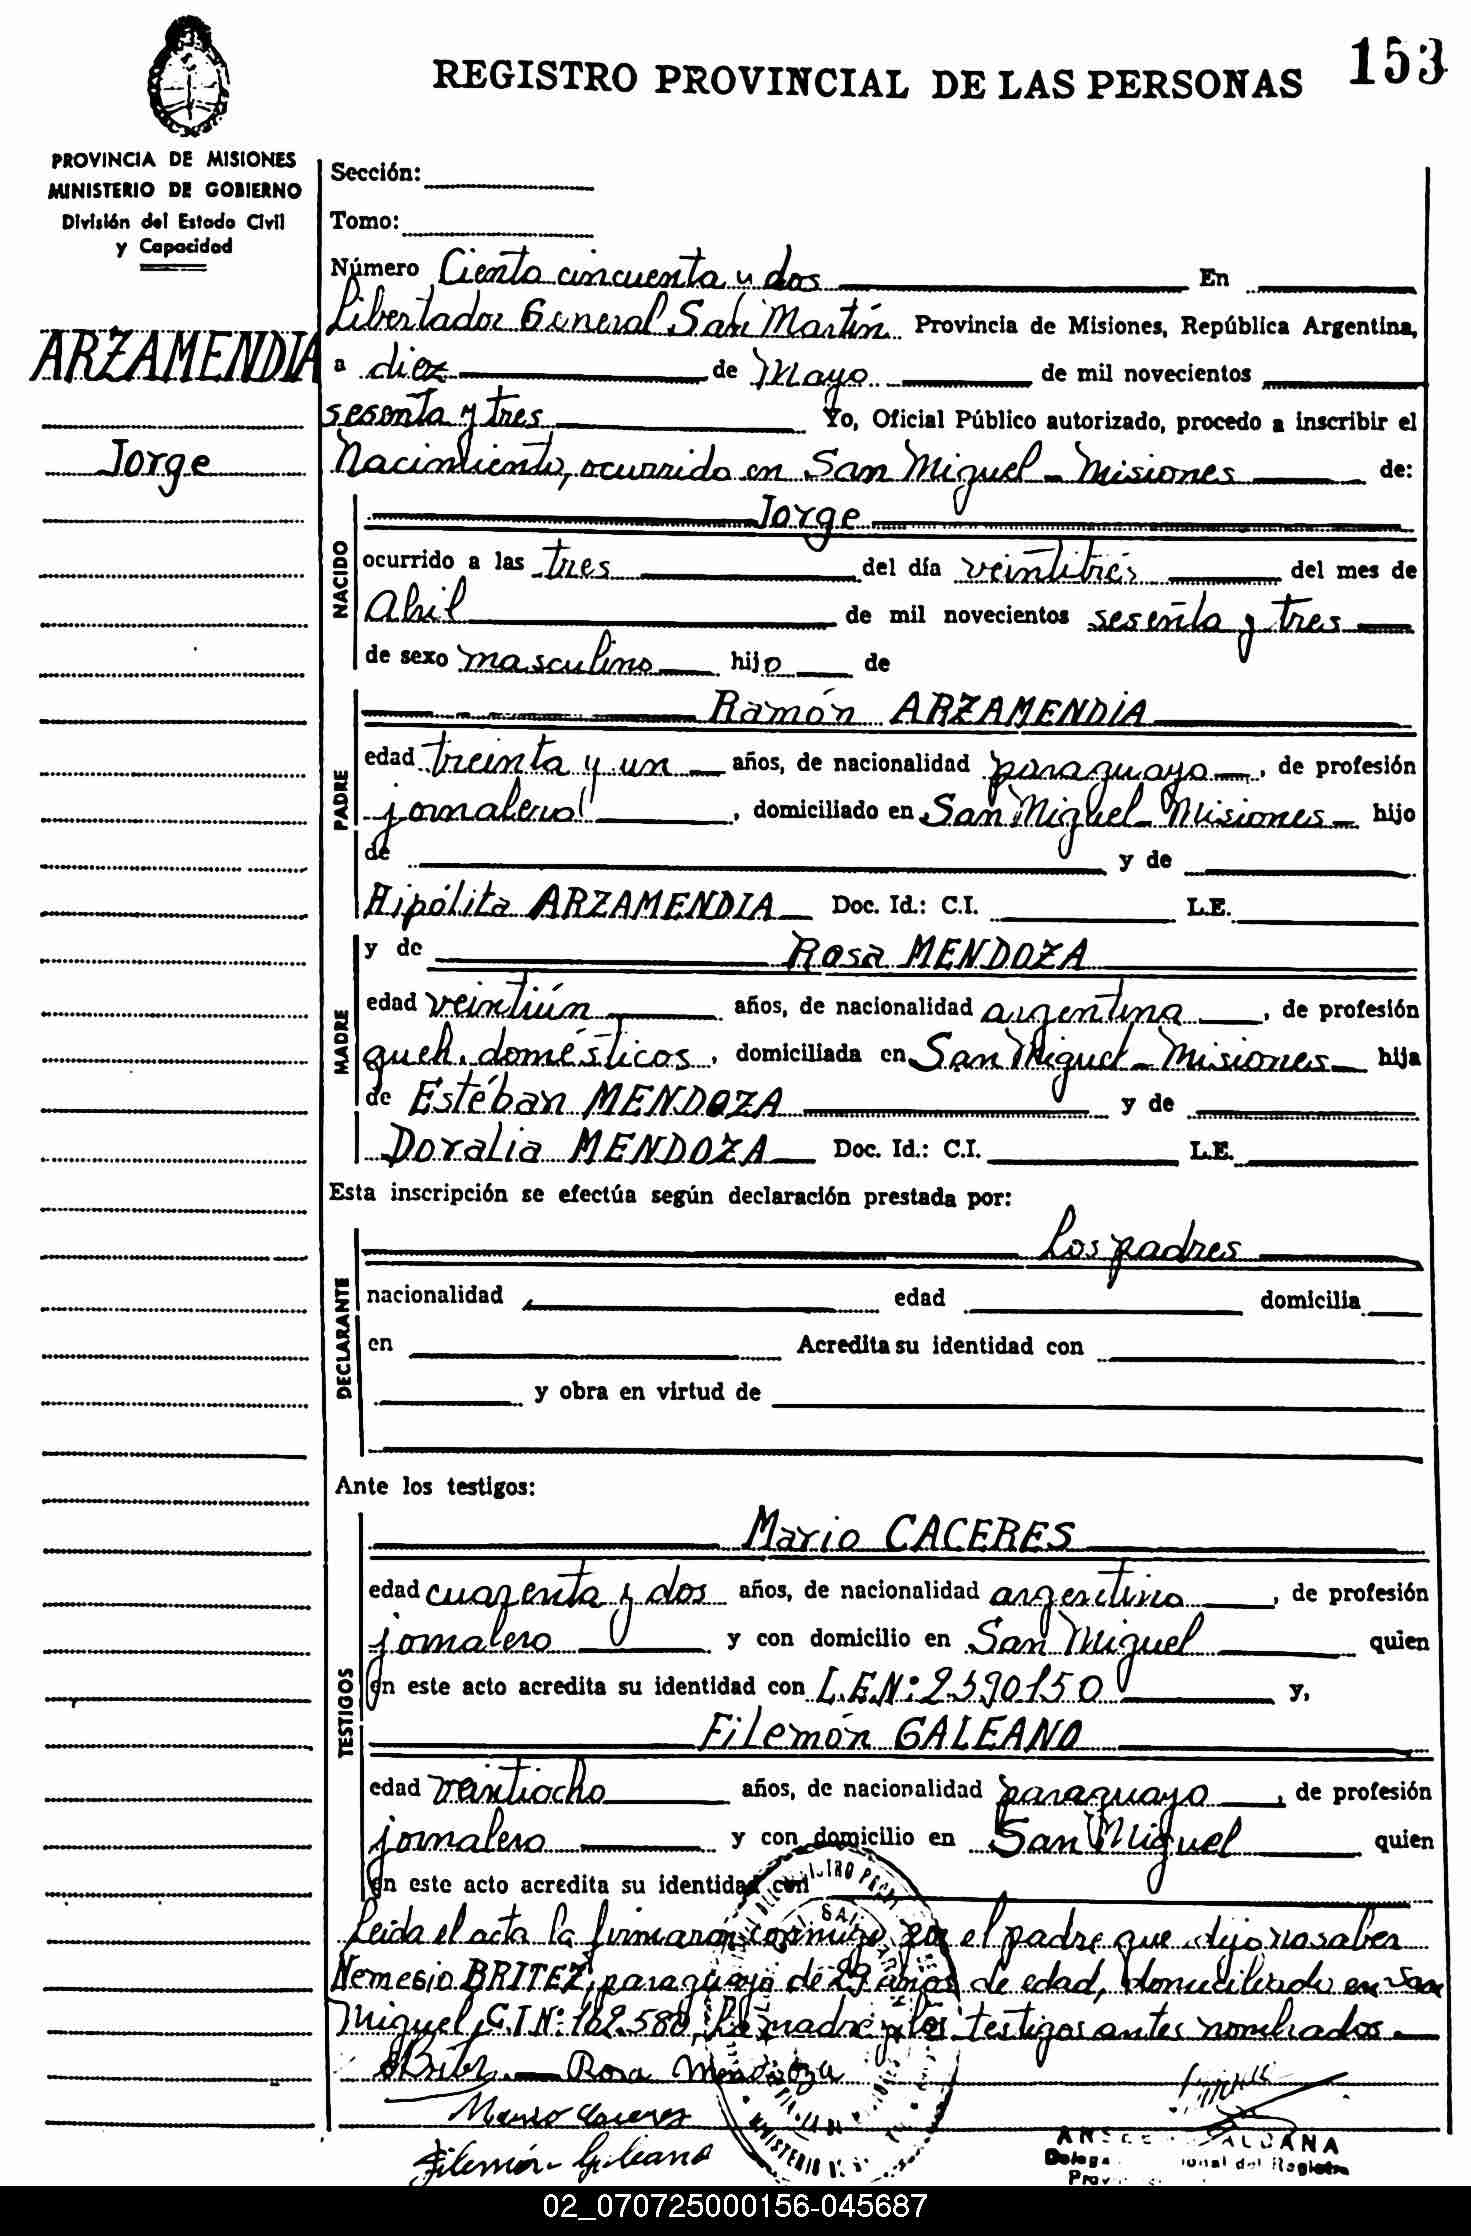 REGISTRO PROVINCIAL DE LAS PERSONAS 153
PROVINCIA DE MISIONES
MINISTERIO DE GOBIERNO
División del Estado Civil
y Capacidad
ARZAMENDIA
Jorge
Sección:
Tomo:
Número Ciento cincuenta y dos En
Libertador General San Martín Provincia de Misiones, República Argentina,
a diez de Mayo de mil novecientos
sesenta y tres Yo, Oficial Público autorizado, procedo a inscribir el
Nacimiento, ocurrido en San Miguel - Misiones de:
NACIDO
Jorge
ocurrido a las tres del día veintitrés del mes de
Abril de mil novecientos sesenta y tres
de sexo masculino hijo de
PADRE
Ramón ARZAMENDIA
edad treinta y un años, de nacionalidad paraguayo, de profesión
jornalero, domiciliado en San Miguel - Misiones hijo
de y de
Hipólita ARZAMENDIA Doc. Id.: C.I. L.E.
MADRE
y de Rosa MENDOZA
edad veintiún años, de nacionalidad argentina, de profesión
queh. domésticos, domiciliada en San Miguel - Misiones hija
de Estéban MENDOZA y de
Doralia MENDOZA Doc. Id.: C.I. L.E.
Esta inscripción se efectúa según declaración prestada por:
DECLARANTE
Los padres
nacionalidad edad domicilia
en Acredita su identidad con
y obra en virtud de
Ante los testigos:
TESTIGOS
Mario CACERES
edad cuarenta y dos años, de nacionalidad argentino, de profesión
jornalero y con domicilio en San Miguel quien
en este acto acredita su identidad con L.E.N: 2.390.150 y,
Filemón GALEANO
edad veintiocho años, de nacionalidad paraguayo, de profesión
jornalero y con domicilio en San Miguel quien
en este acto acredita su identidad con
Leida el acta la firmaron conmigo por el padre que dijo no saber
Nemesio BRITEZ, paraguayo de 29 años de edad, domiciliado en San
Miguel, C.I.N: 162.580, La madre y los testigos antes nombrados.
Rosa Mendoza
Mario Caceres
Filemón Galeano
02_070725000156-045687